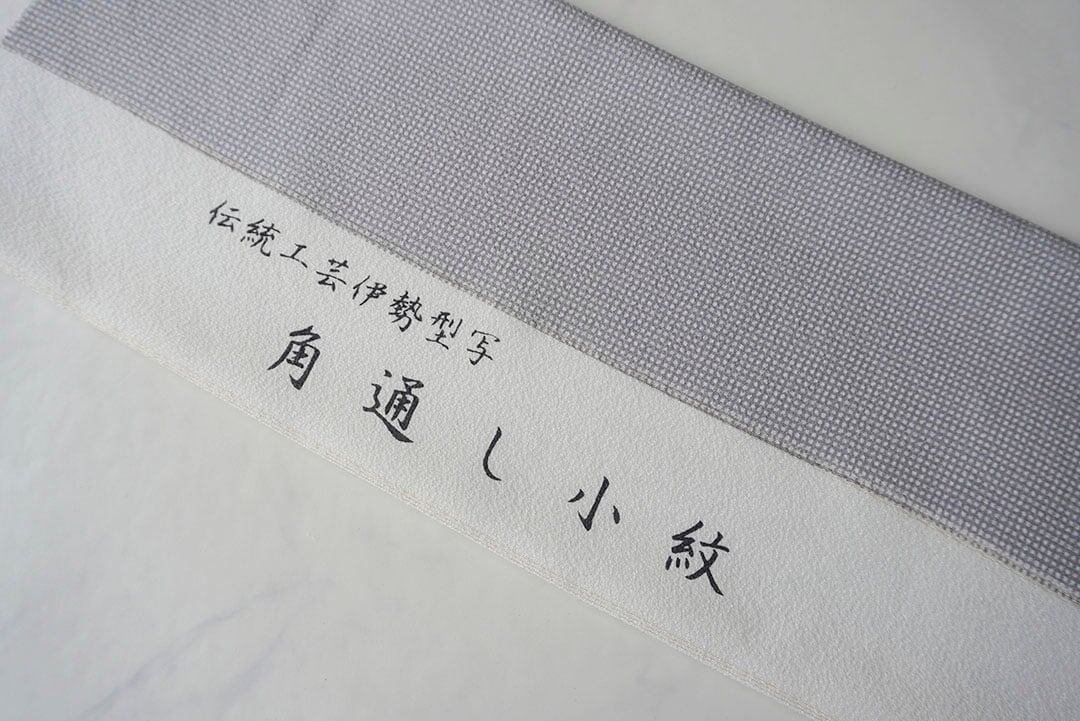 伝統工芸伊勢型写
角通し小紋